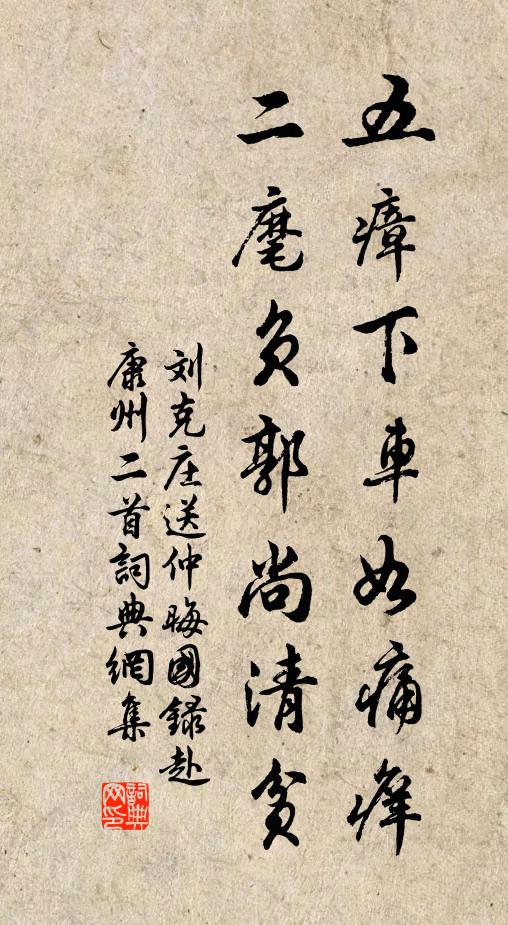 五瘴下車如痛癢
二麾負郭尚清貧
刘克庄送仲晦國録赴
康州二首詞典網集
詞典网印